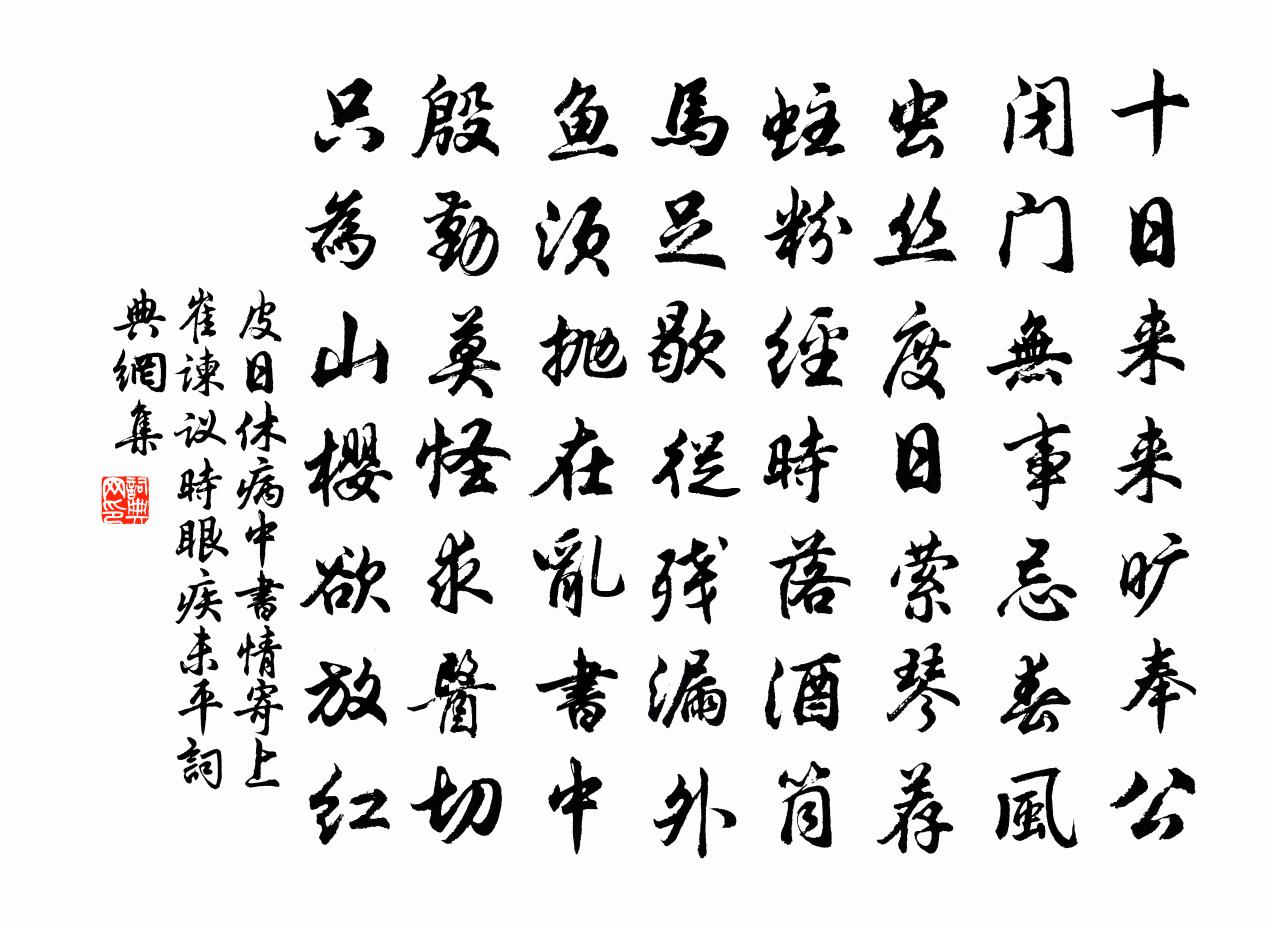 十日来来旷奉公
闭门無事忌春風
虫丝度日萦琴荐
蛀粉經時落酒筒
馬足歇從残漏外
鱼须抛在亂書中
殷勤莫怪求醫切
只為山櫻欲放红
皮日休病中書情寄上
崔諫议時眼疾未平詞
典網集
詞典网印